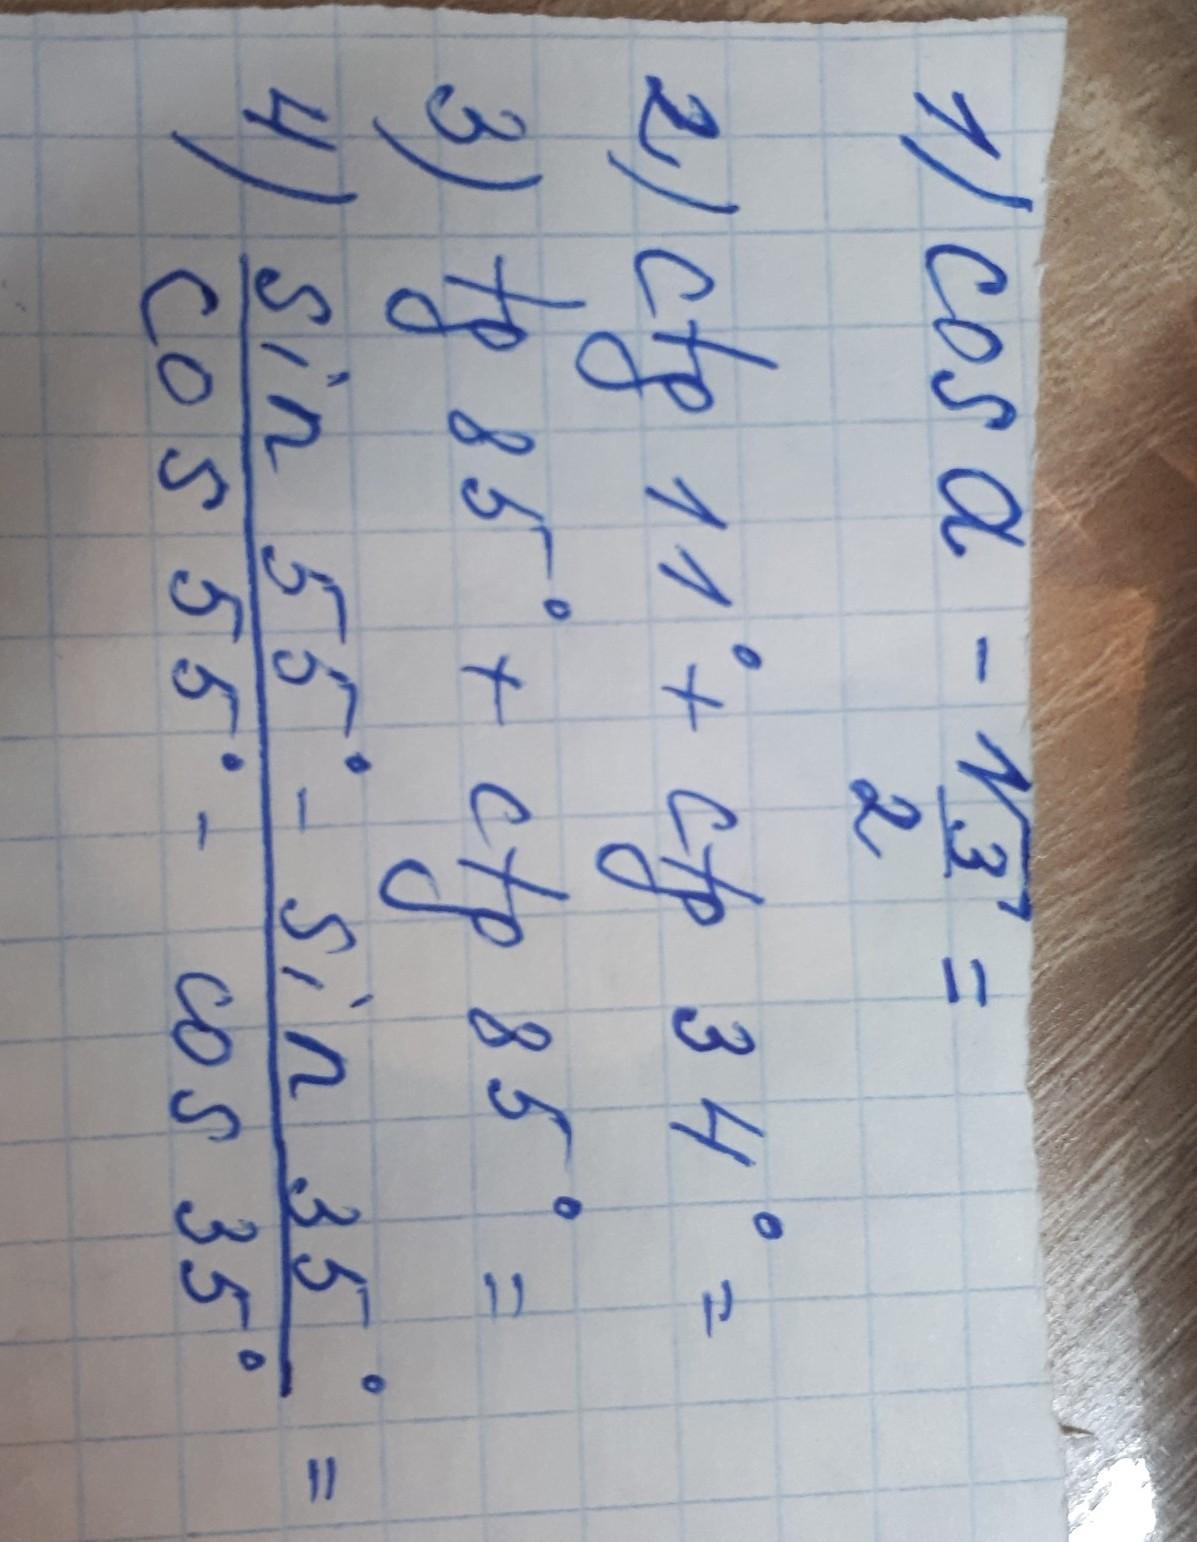 1) cos α - √3/2 =
2) ctg 11° + ctg 34° =
3) tg 85° + ctg 85° =
4) sin 55° - sin 35° =
cos 55° - cos 35°